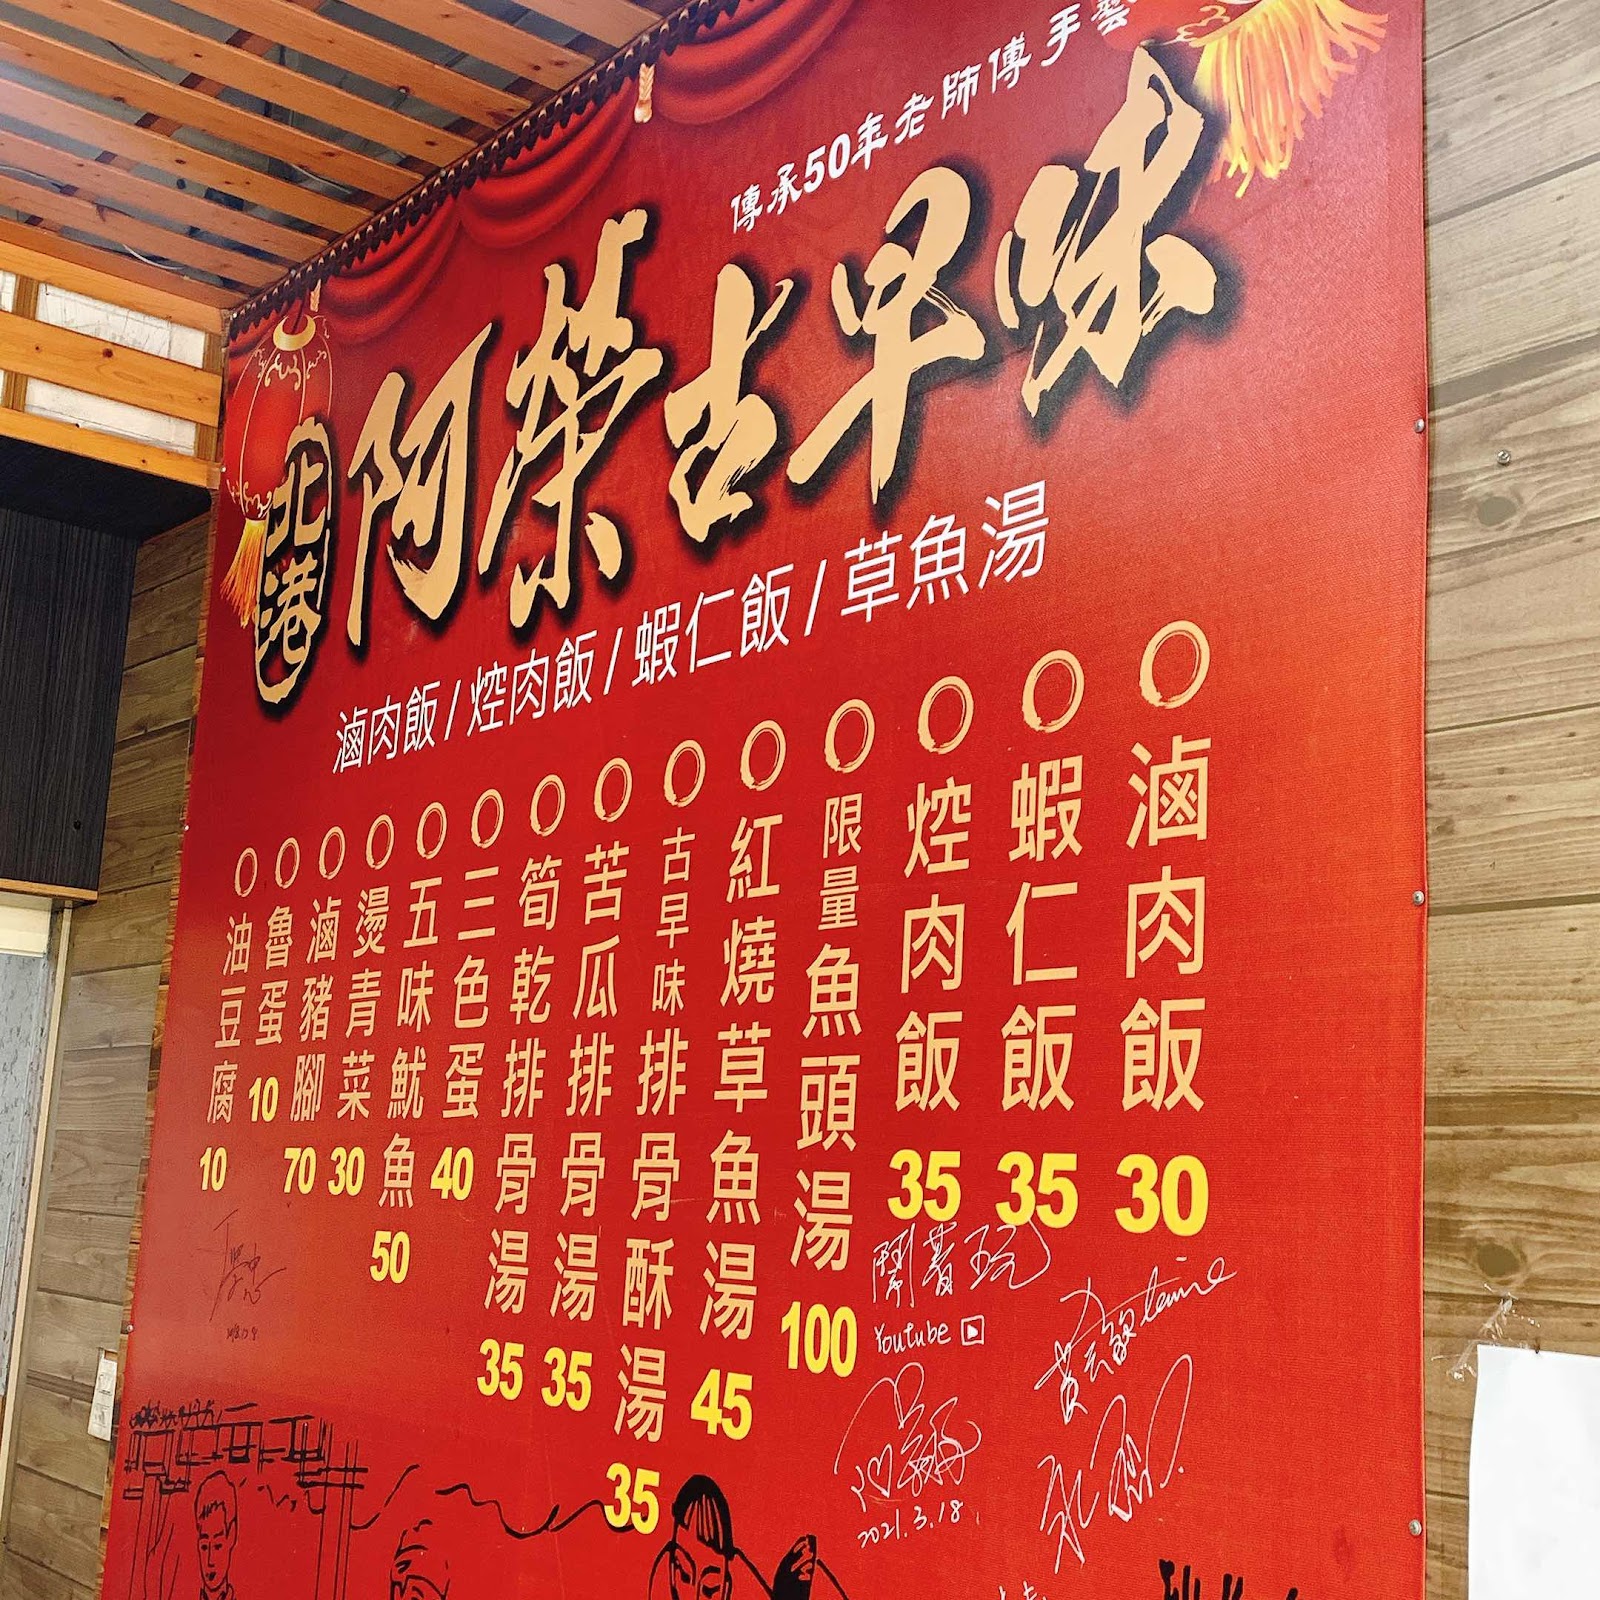 傳承50年老師傅手藝
北港
阿榮古早味
滷肉飯/焢肉飯/蝦仁飯/草魚湯
滷肉飯 30
蝦仁飯 35
焢肉飯 35
限量魚頭湯 100
紅燒草魚湯 45
古早味排骨酥湯 35
苦瓜排骨湯 35
筍乾排骨湯 35
三色蛋 40
五味魷魚 50
燙青菜 30
滷豬腳 70
魯蛋 10
油豆腐 10
鬧著玩
Youtube
2021.3.18